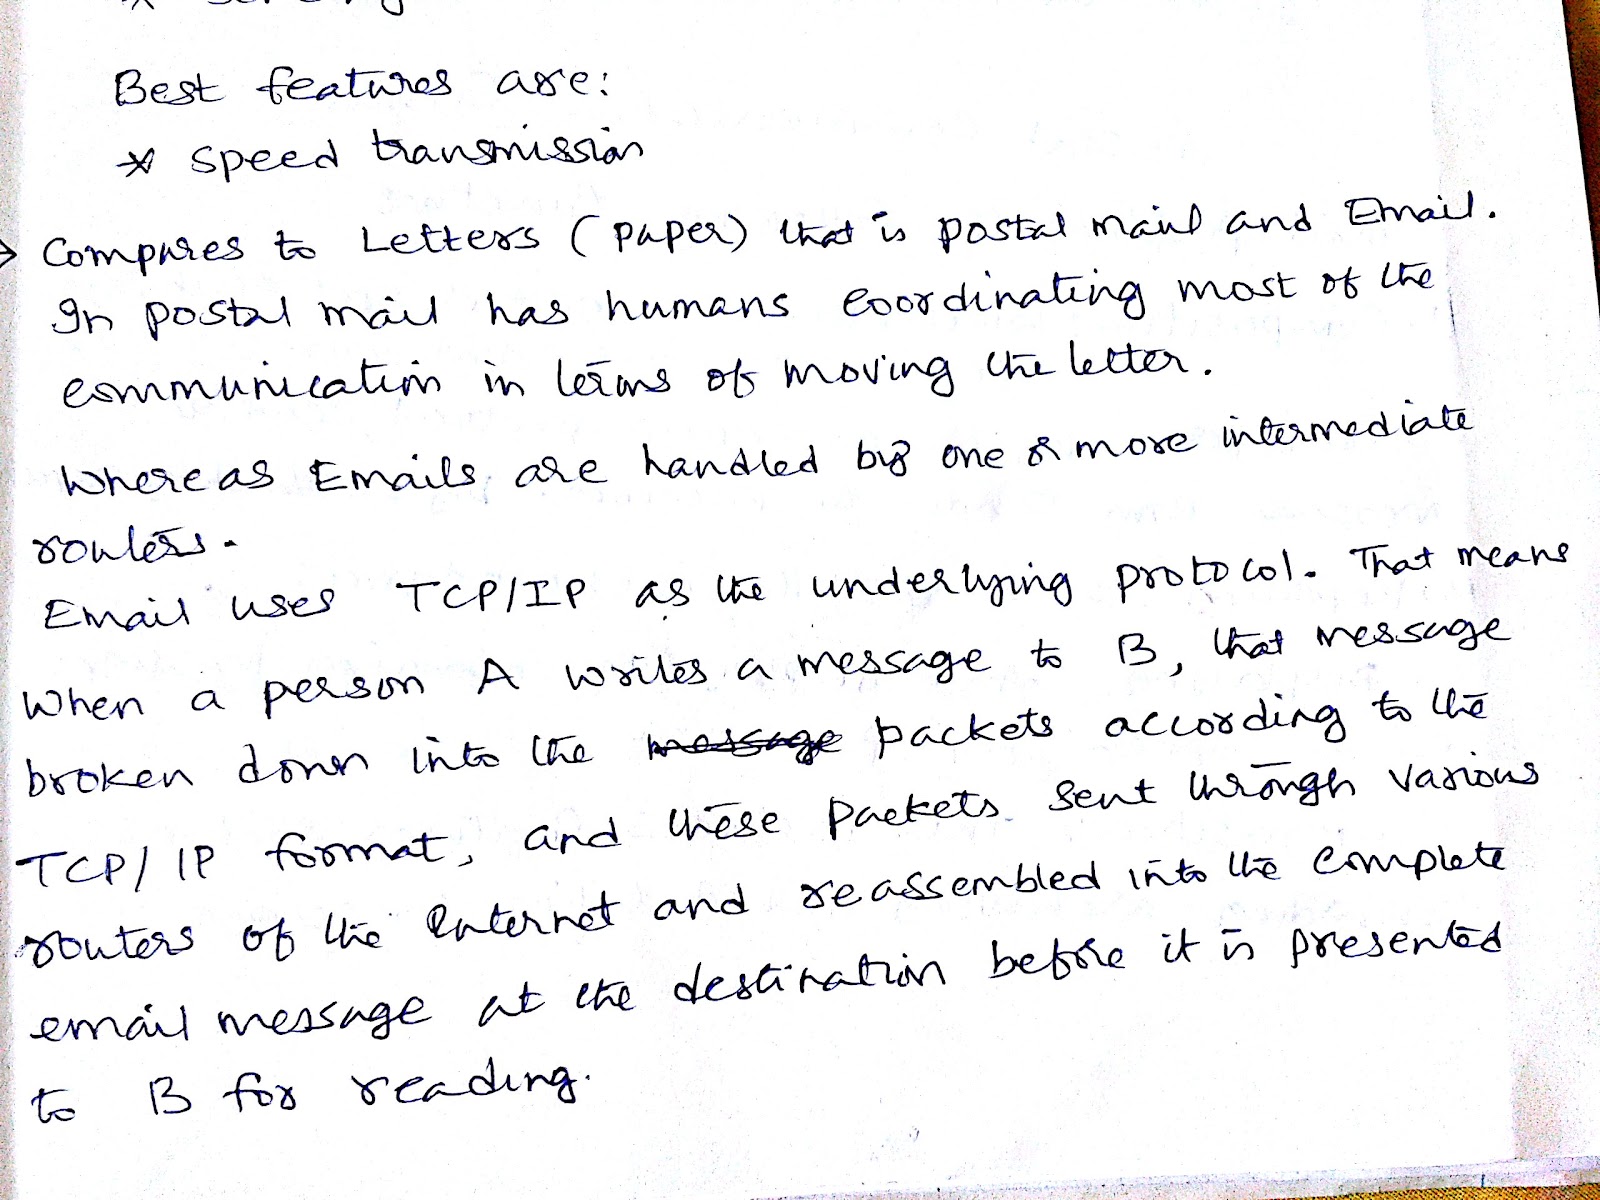 Best features are:
* speed transmission
→ Compares to Letters (paper) that is postal mail and Email.
In postal mail has humans coordinating most of the
communication in terms of moving the letter.
Whereas Emails are handled by one or more intermediate
routers.
Email uses TCP/IP as the underlying protocol. That means
When a person A writes a message to B, that message
broken down into the message packets according to the
TCP/IP format, and these packets sent through various
routers of the Internet and reassembled into the complete
email message at the destination before it is presented
to B for reading.